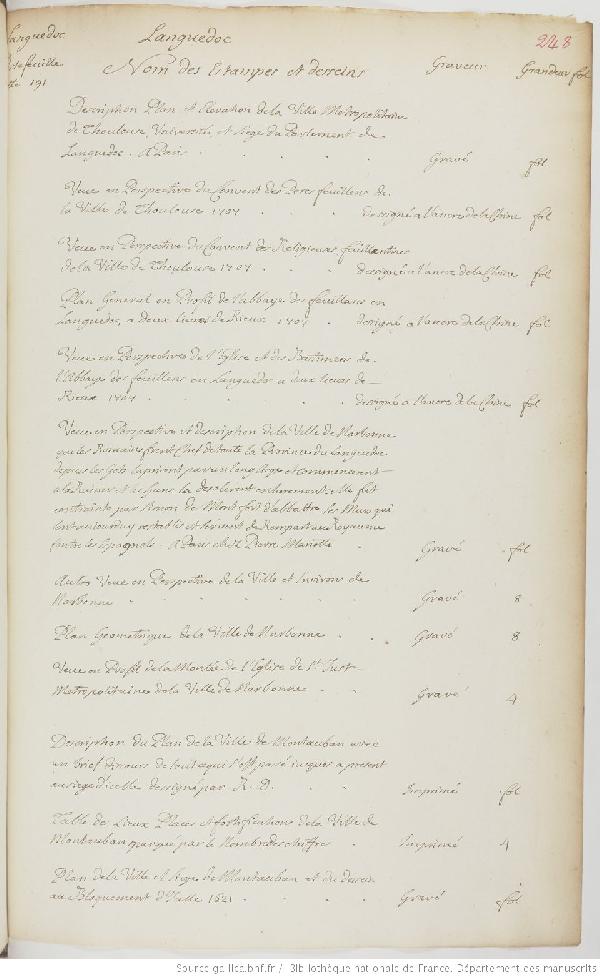 Languedoc Languedoc 248
Portefeuille Nom des Estampes et desseins Graveur Grandeur fol
191
Description Plan et Elevation de la Ville Metropolitaine
de Thoulouse, Université, et siege du Parlement du
Languedoc. A Paris . . . . Gravé fol
Veue en Perspective du Convent des Peres feuillens de
la Ville de Thoulouse 1707 . . dessigné a l'ancre de la Chine fol
Veue en Perspective du Convent des Religieuses feuillentines
de la Ville de Thoulouse 1707 . . dessigné a l'ancre de la Chine fol
Plan General en Profil de l'abbaye des feuillans en
Languedoc, a deux lieues de Rieux 1707 . dessigné a l'ancre de la Chine fol
Veue en Perspective de l'Eglise et des Bastimens de
l'Abbaye des feuillens en Languedoc a deux lieues de
Rieux 1707 . . . . dessigné a l'ancre de la Chine fol
Veue en Perspective et description de la Ville de Narbonne
que les Romains firent Chef de toute la Province du Languedoc
depuis les Gots la prirent par un long siege et commencerent
a la Ruiner et les la desolerent entierement, elle fut
contrainte par Simon de Montfort d'abbattre les Murs qui
sont aujourduy restablis et servent de Rempart au Royaume
contre les Espagnols. A Paris chez Pierre Mariette . Gravé . fol
Autre Veue en Perspective de la Ville et Environs de
Narbonne . . . . . Gravé 8
Plan Geometrique de la Ville de Narbonne . . Gravé 8
Veue en Profil de la Montée de l'Eglise de St Just
Metropolitaine de la Ville de Narbonne . . Gravé 4
Description du Plan de la Ville de Montauban avec
un brief discours de tout ce qui s'est passé jusques a present
au siege d'icelle dessigné par R. D. . . Imprimé . fol
Table de Lieux Places et fortifications de la Ville de
Montauban marquée par le Nombre des chiffres . Imprimé 4
Plan de la Ville et siege de Montauban et du dessein
au Bloquement d'Icelle 1621 . . . Gravé . fol
Source gallica.bnf.fr / Bibliothèque nationale de France. Département des manuscrits